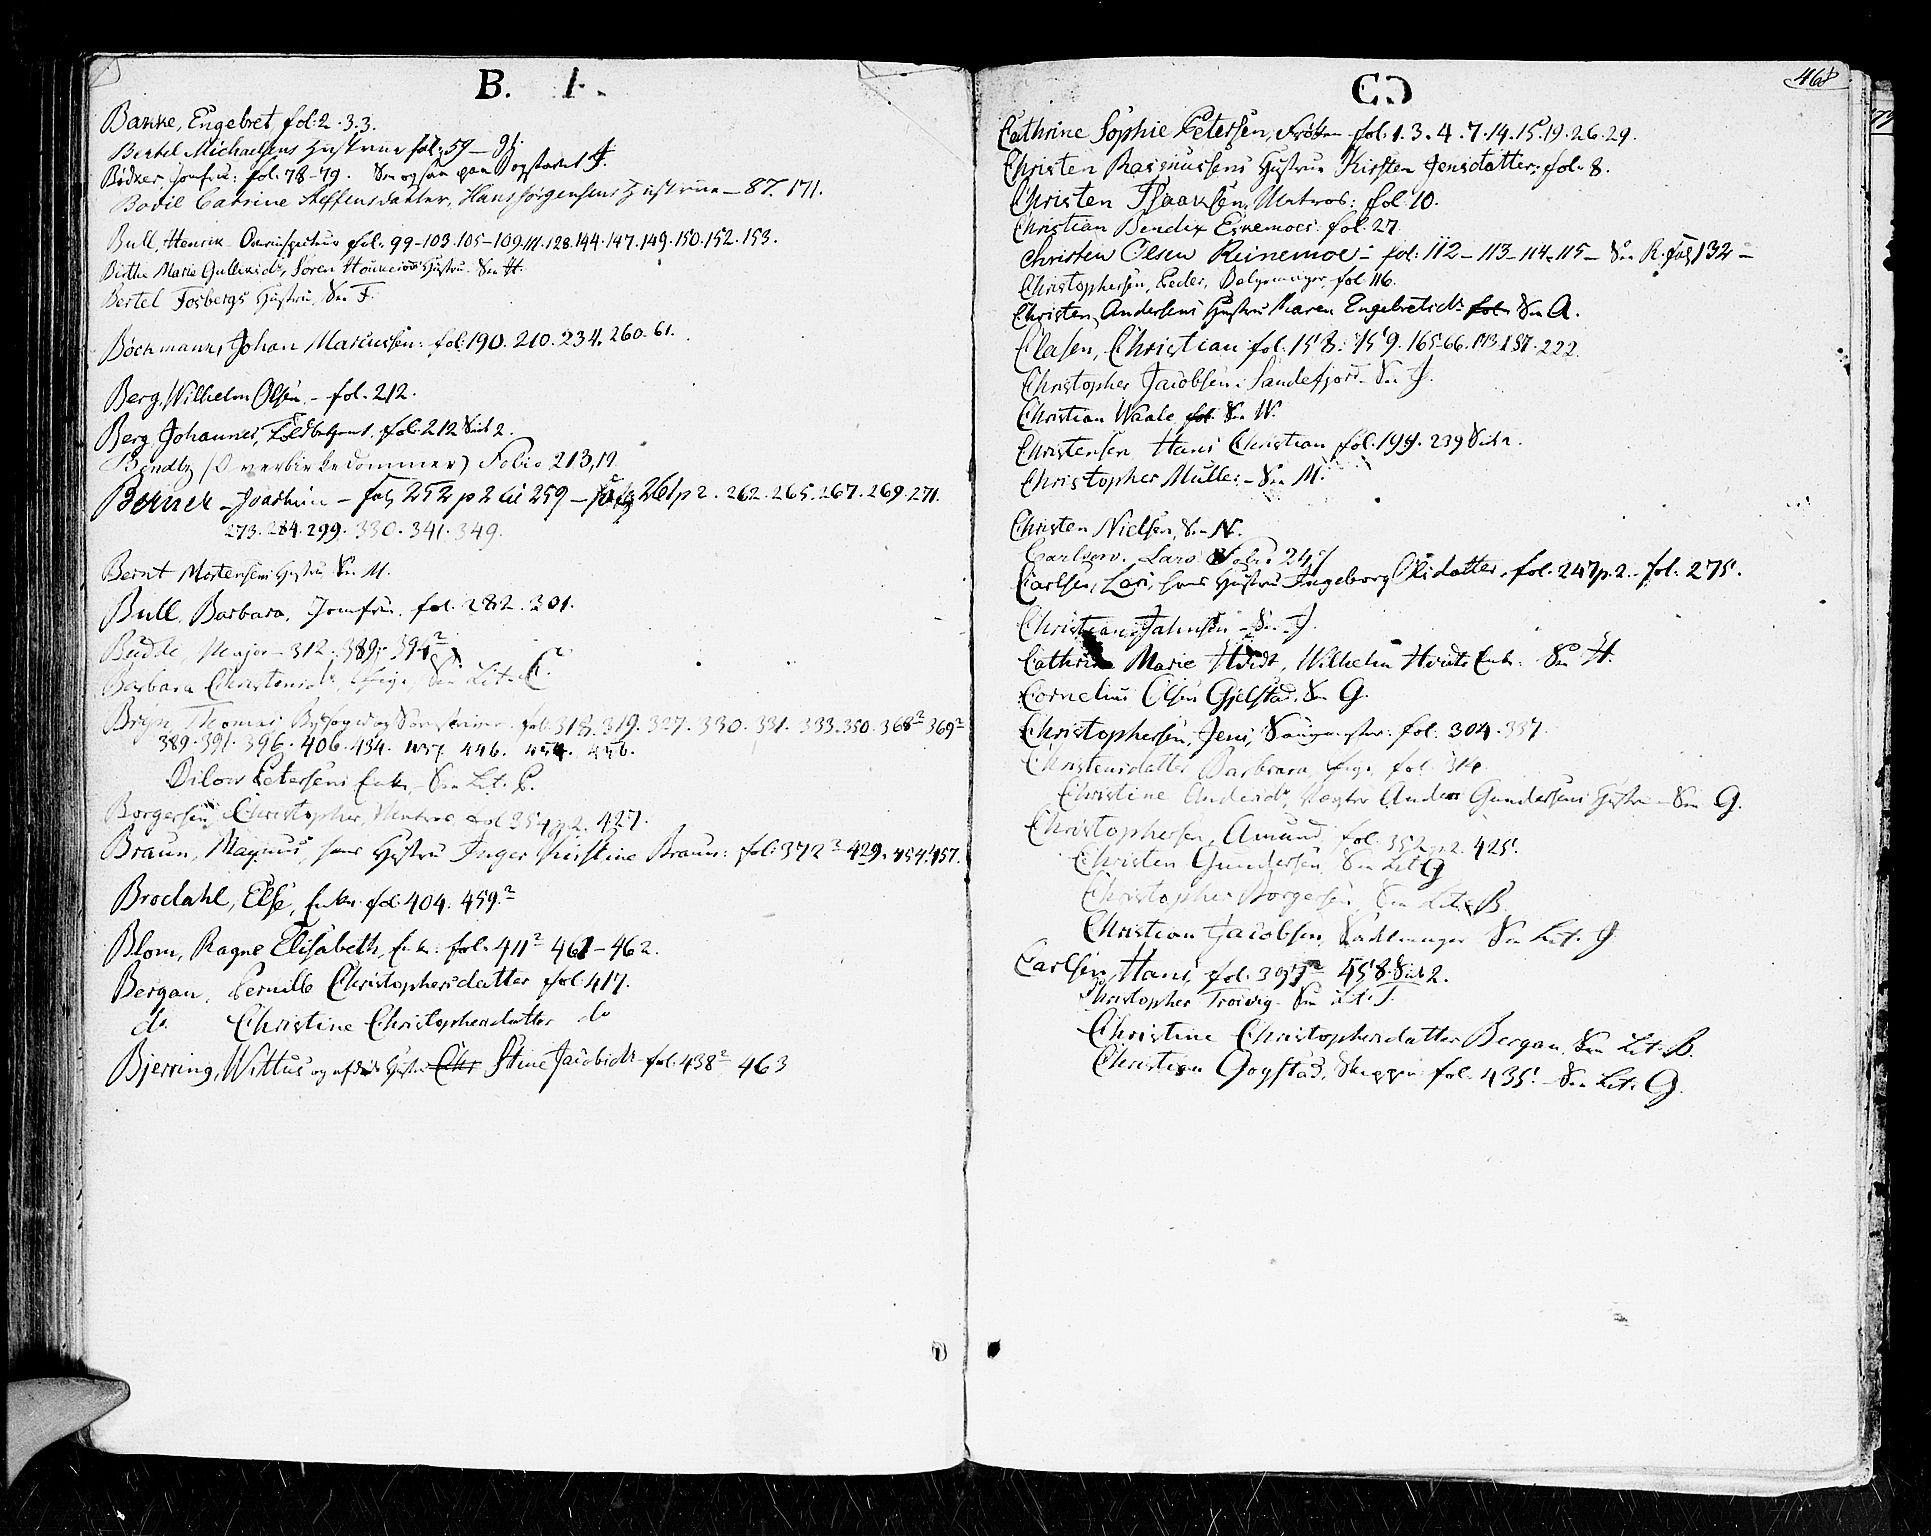 B.
Bakke, Engebret, fol. 2. 3. 3.
Bertel Michaelsens Hustrue fol. 59 — 91.
Bödker, Jomfrue: fol. 78-79. See ogsaa paa Bogstavet J.
Bodil Catrine Steffensdatter, Hans Jörgensens Hustrue — 87. 171.
Bull, Henrik fol. 99-103. 105-109. 111. 128. 144. 147. 149. 150. 152. 153.
Birthe Marie Gullixdr, Sören Hustru. See H.
Bertel Fosbergs Hustru, See F.
Böckmann, Johan Marcussen: fol. 190. 210. 234. 260. 61.
Berg, Wilhelm Olsen, - fol. 212.
Berg, Johannes, fol. 212 Side 2.
Bendtz (Overbirkedommer) Folio 213, 19
Berner - Joachim - fol 252 p 2 til 259 - fol 261 p 2. 262. 265. 267. 269. 271.
273. 284. 299. 330. 341. 349.
Bernt Mortensens Hustru See M.
Bull, Barbara, Jomfru. fol. 282. 301.
Budde, Major - 312. 389. 394 2
Barbara Christensdr, Pige, See Lit. C.
Bryn, Thomas Byfoged og Sorenskriver. fol. 318. 319. 327. 330. 331. 333. 350. 368 2 369 2
389. 391. 396. 406. 434. 437. 446. 454. 456.
Petersens Enke, See Lit. P.
Borgersen, Christopher, Matros fol 354 p 2. 427.
Braun, Magnus, hans Hustru Inger Kirstine Braun: fol. 372 2 429. 454. 457.
Brodahl, Else, Enke fol. 404. 459. 2
Blom, Ragne Elisabeth, Enke: fol. 411 2 461-462.
Bergan, Pernille Christophersdatter fol. 417.
do Christine Christophersdatter do
Bjerring, Wittus og afdøde Hustru Chr Stine Jacobsdr fol. 438 2 463
C
468
Cathrine Sophie Petersen, Fröken fol. 1. 3. 4. 7. 14. 15. 19. 26. 29.
Christen Rasmussens Hustrue Kirsten Jensdatter: fol. 8.
Christen Isaaksen, Matros: fol. 10.
Christian Bendix Eskemoes fol. 27
Christen Olsen Reinemoe - fol. 112 - 113 - 114 - 115 - See R. fol 132 -
Christophersen, Peder, fol 116.
Christen Andersens Hustru Karen Engebretsdr fol. See A.
Clasen, Christian fol. 158. 159. 165-66. 173. 187. 222.
Christopher Jacobsen Sandefjord. See J.
Christian Waale fol. See W.
Christensen Hans Christian fol. 199. 239 Side 2.
Christopher Muller - See M.
Christen Nielsen, See N.
Carlsen, Lars Folio 247
Carlsen, Lars, hans Hustru Ingeborg Olsdatter. fol. 247 p. 2. - fol. 275.
Christian Jahnsen - See J.
Cathrine Marie Hvidt, Wilhelm Hvidts Enke. See H.
Cornelius Olsen Gjelstad. See G.
Christophersen, Jens, fol. 304. 337.
Christensdatter Barbara, Pige, fol. 314.
Christine Andersdr, Anders Gundersens Hustru - See G.
Christophersen, Amund, fol. 352 p 2. 425.
Christen Gundersen, See Lit G
Christopher Borgersen, See Lit. B.
Christian Jacobsen, Sadelmager See Lit. J
Carlsen, Hans, fol. 397 2 458. Side 2.
Christopher Trovig. See Lit. T.
Christine Christophersdatter Bergan, See Lit. B.
Christian Gogstad, Skipper fol. 435. - See Lit. G.